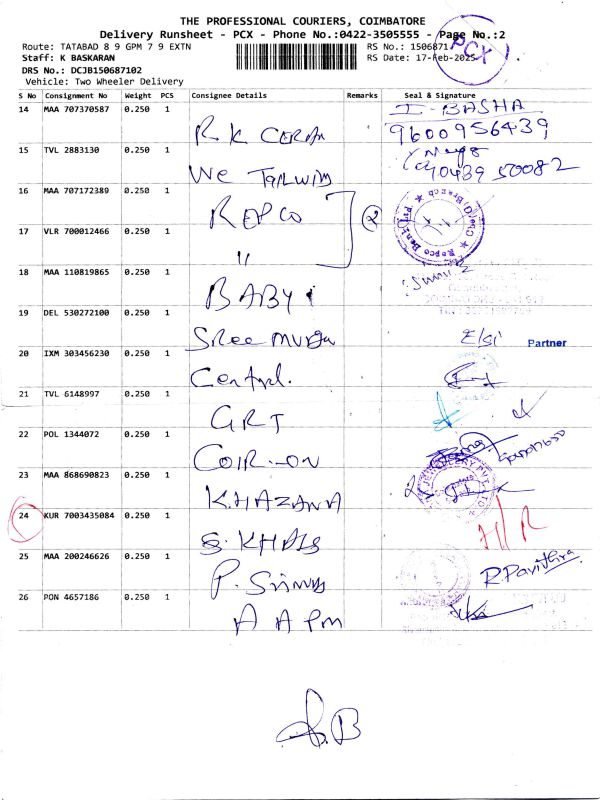 THE PROFESSIONAL COURIERS, COIMBATORE
Delivery Runsheet - PCX - Phone No.:0422-3505555 - Page No.:2
Route: TATABAD 8 9 GPM 7 9 EXTN
RS No.: 1506871
PCX
Staff: K BASKARAN
RS Date: 17-Feb-2025
DRS No.: DCJB150687102
Vehicle: Two Wheeler Delivery
S No Consignment No Weight PCS Consignee Details Remarks Seal & Signature
14 MAA 707370587 0.250 1 R K CERAM I-BASHA
9600956439
15 TVL 2883130 0.250 1 We TAILWIND
16 MAA 707172389 0.250 1 REPCO 2
17 VLR 700012466 0.250 1 "
18 MAA 110819865 0.250 1 BABY
19 DEL 530272100 0.250 1 Sree Muruga Partner
20 IXM 303456230 0.250 1 Central.
21 TVL 6148997 0.250 1 GRT
22 POL 1344072 0.250 1 COIR-ON
23 MAA 868690823 0.250 1 KHAZANA
24 KUR 7003435084 0.250 1 S. KHALS
25 MAA 200246626 0.250 1 P. R. Pavithra
26 PON 4657186 0.250 1 A A PM